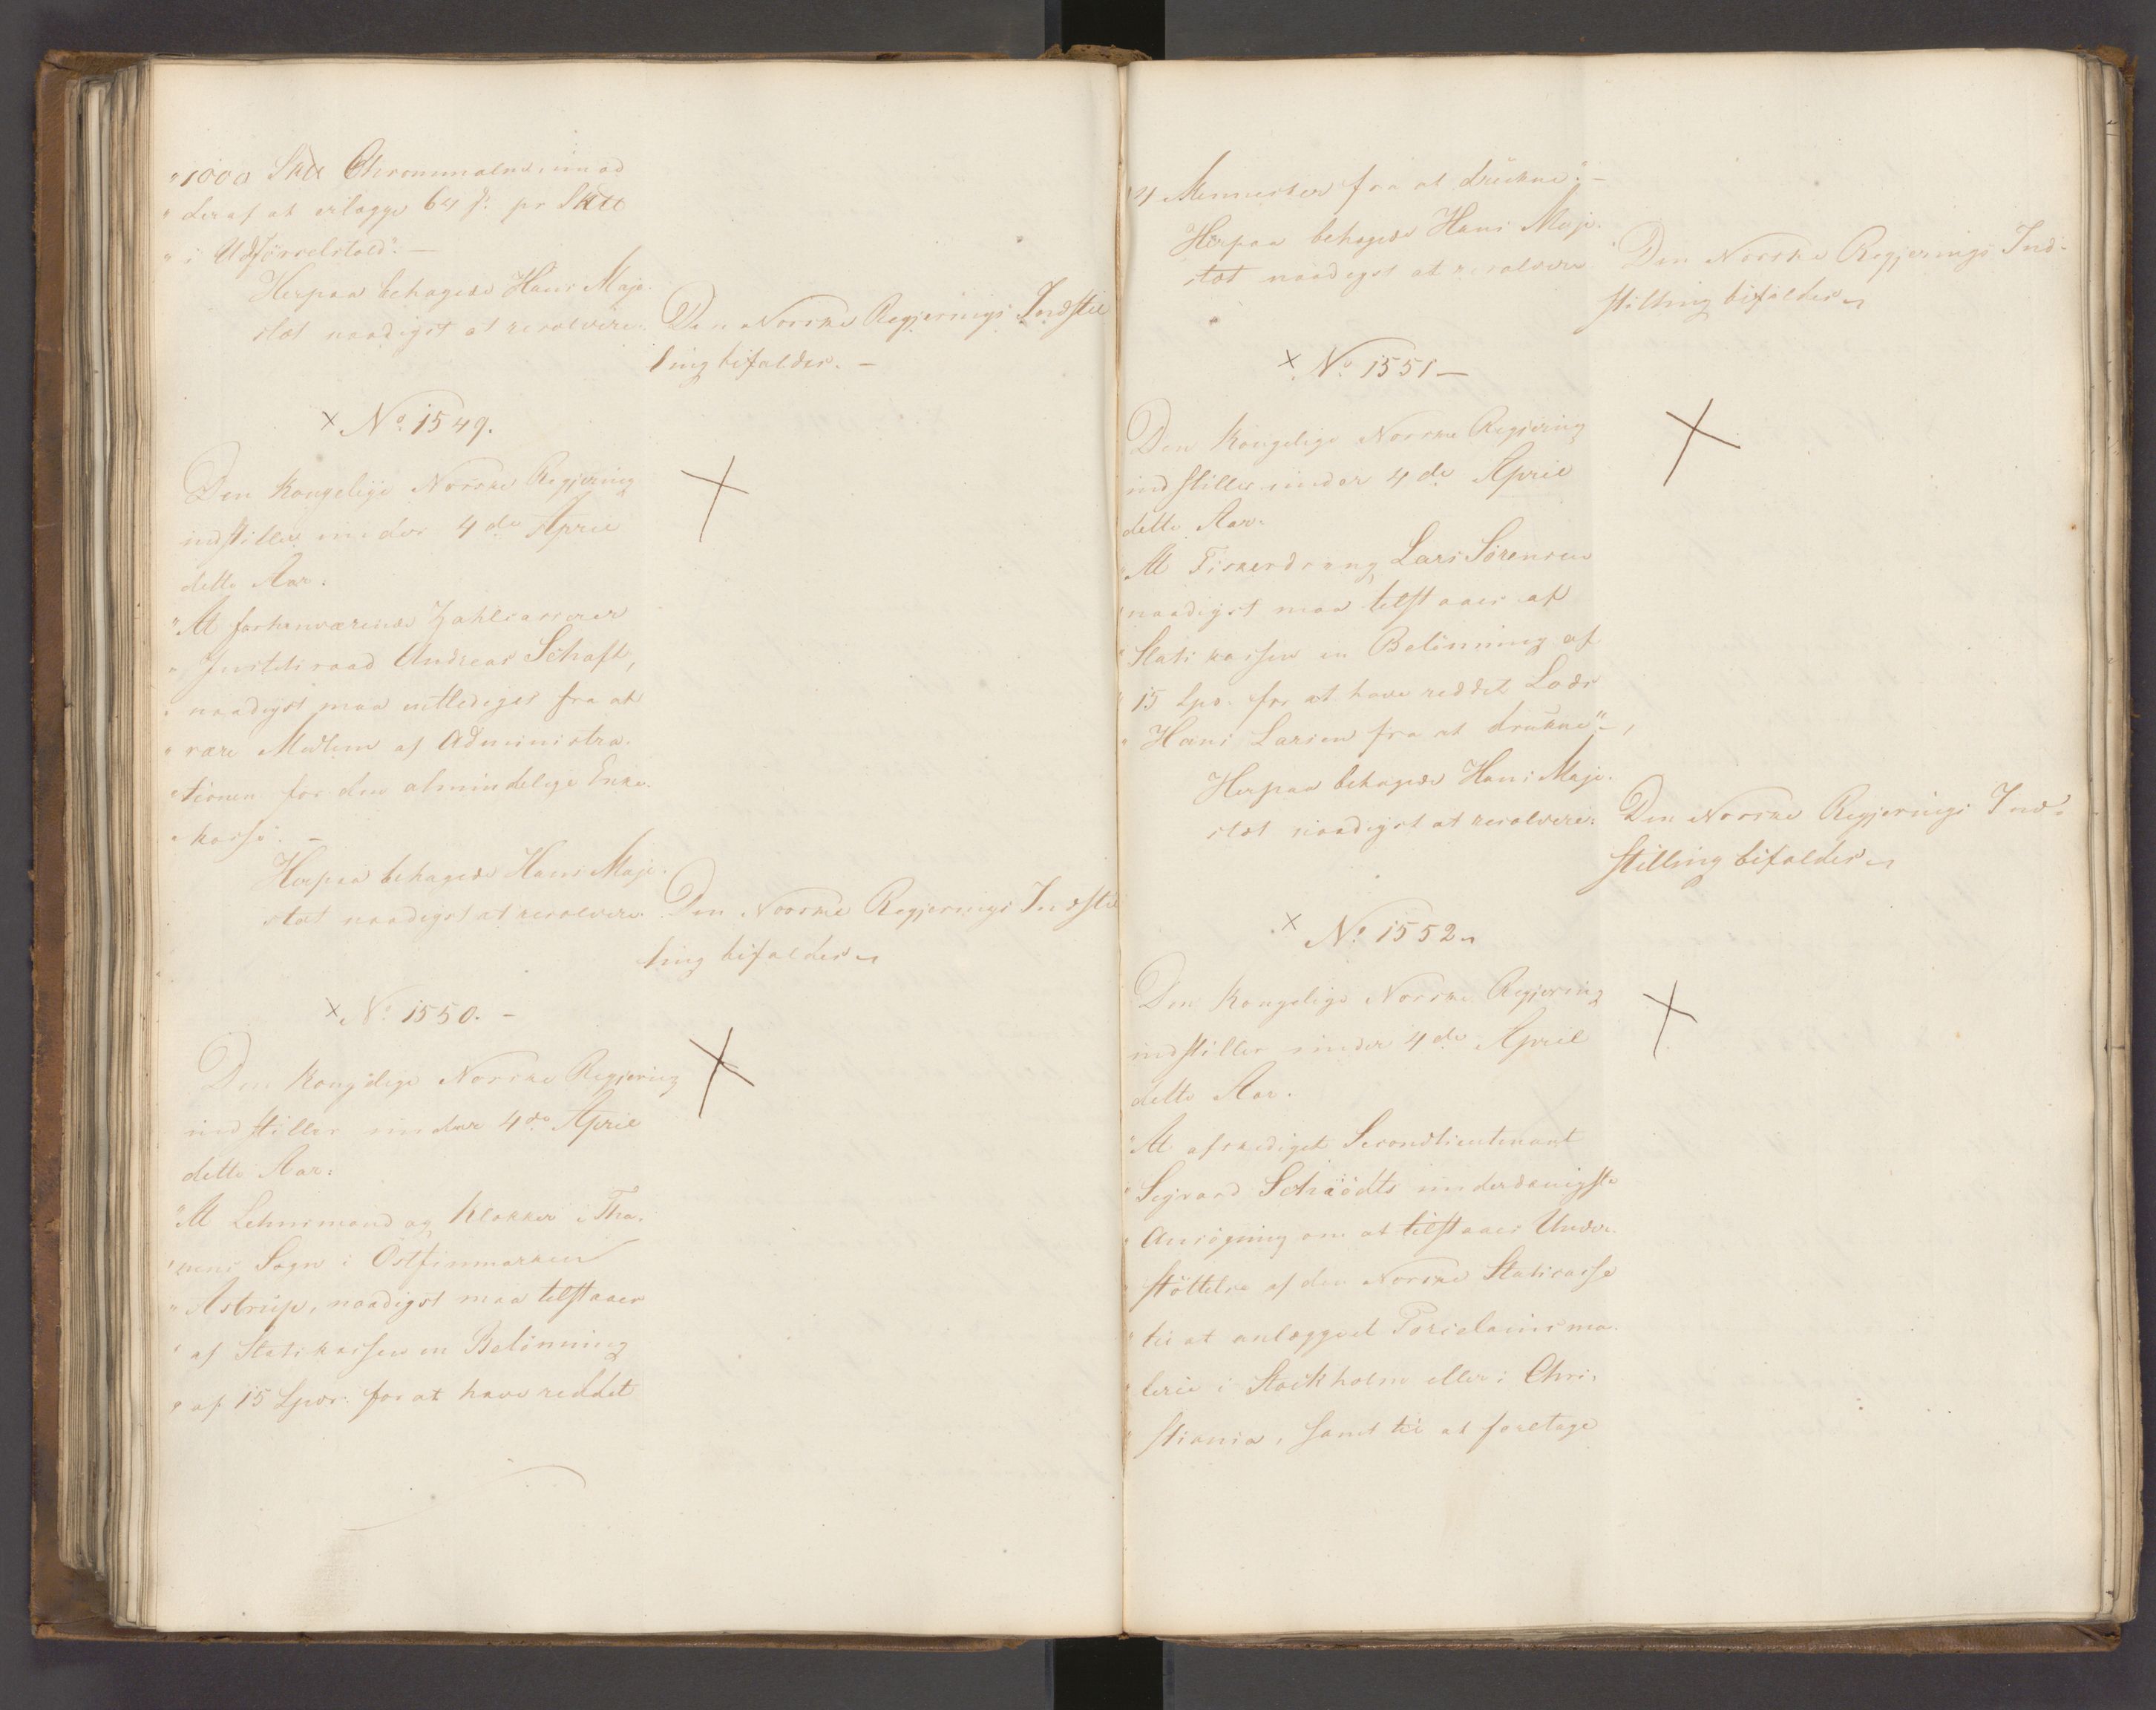 "1000 Sk℔ Chrommalm, imod
" deraf at erlægge 64 ſs. pr Sk℔
" i Udförselstold". —
Herpaa behagede Hans Maje-
stæt naadigst at resolvere:
Den Norske Regjerings Indstil
ling bifaldes. —
× No. 1549.
Den Kongelige Norske Regjering
indstiller under 4de April
dette Aar:
"At forhenværende Zahlcasserer
" Justitsraad Andreas Schaft,
" naadigst maa entlediges fra at
" være Medlem af Administra-
"tionen for den almindelige Enke-
"kasse". —
Herpaa behagede Hans Maje-
stæt naadigst at resolvere:
Den Norske Regjerings Indstil
ling bifaldes
× No. 1550. -
Den Kongelige Norske Regjering
indstiller under 4de April
dette Aar:
"At Lehnsmand og Klokker i Tha-
"nens Sogn i Östfinmarken
" Astrup, naadigst maa tilstaaes
" af Statskassen en Belönning
" af 15 Spdr: for at have reddet
"4 Mennesker fra at drukne". —
Herpaa behagede Hans Maje-
stæt naadigst at resolvere
Den Norske Regjerings Ind-
stilling bifaldes
× No. 1551 —
Den Kongelige Norske Regjering
indstiller under 4de April
dette Aar:
"At Fiskerdreng Lars Sörensen
"naadigst maa tilstaaes af
"Statskassen en Belönning af
" 15 Spd. for at have reddet Lods
" Hans Larsen fra at drukne" —
Herpaa behagede Hans Maje-
stæt naadigst at resolvere:
Den Norske Regjerings Ind-
stilling bifaldes
× No. 1552
Den Kongelige Norske Regjering
indstiller under 4de April
dette Aar.
"At afskediget Secondlieutenant
" Segvard Schiödts underdanigste
" Ansögning om at tilstaaes Under-
" stöttelse af den Norske Statscasse
" til at anlægge et Porcelainsma-
" lerie i Stockholm eller i Chri-
" stiania, samt til at foretage